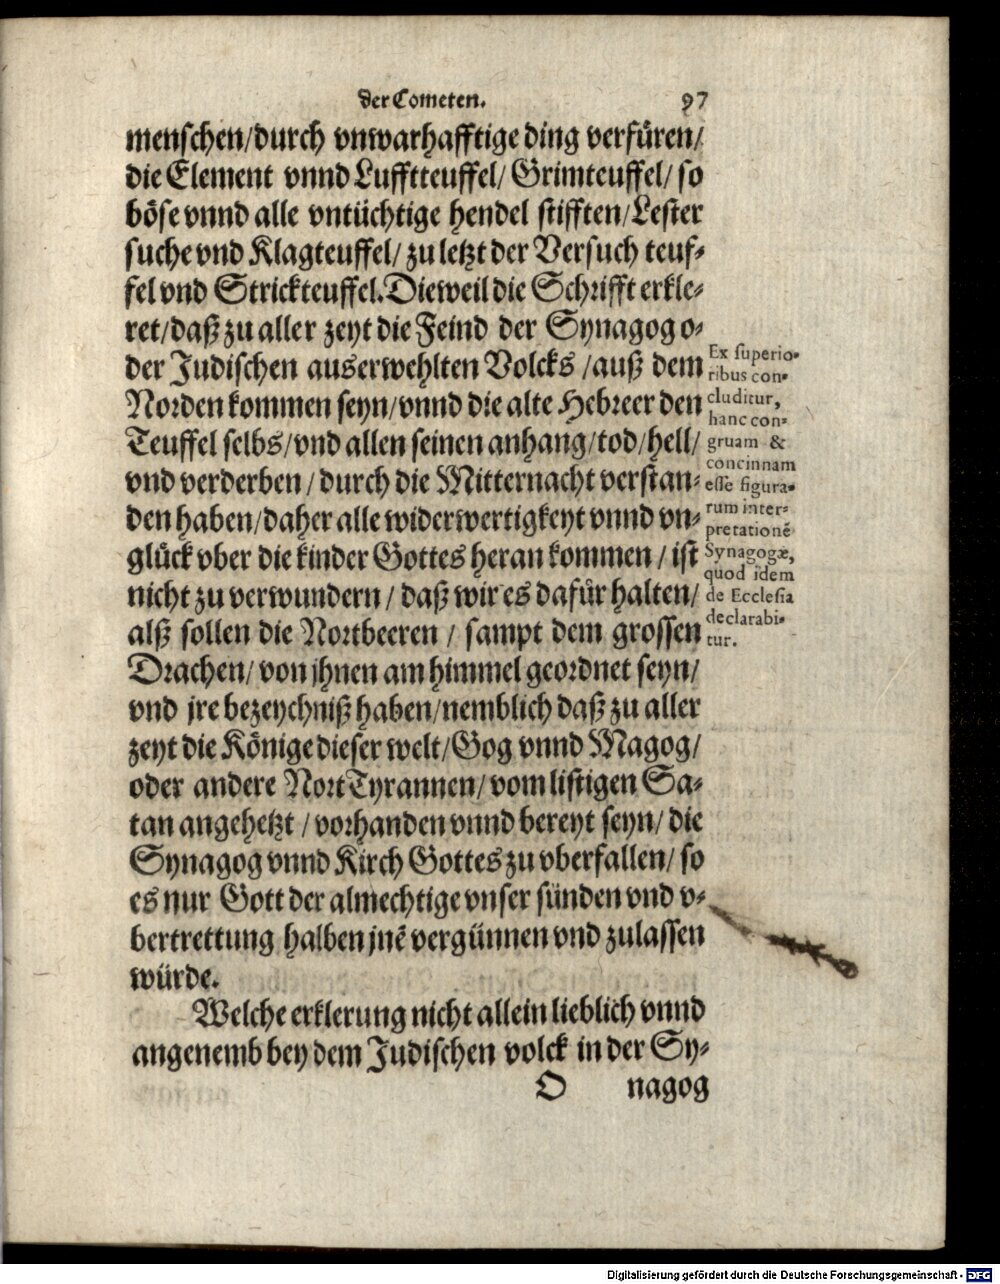 der Cometen. 97
menschen/durch vnwarhafftige ding verfüren/
die Element vnnd Lufftteuffel/ Grimteuffel/ so
böse vnnd alle vntüchtige hendel stifften/Lester
suche vnd Klagteuffel/ zu letzt der Versuch teuf-
fel vnd Strickteuffel. Dieweil die Schrifft erkle-
ret/daß zu aller zeyt die Feind der Synagog o-
der Judischen auserwehlten Volcks /auß dem
Norden kommen seyn/vnnd die alte Hebreer den
Teuffel selbs/vnd allen seinen anhang/tod/hell/
vnd verderben / durch die Mitternacht verstan-
den haben/daher alle widerwertigkeyt vnnd vn-
glück vber die kinder Gottes heran kommen / ist
nicht zu verwundern / daß wir es dafür halten/
alß sollen die Nortbeeren / sampt dem grossen
Drachen/ von jhnen am himmel geordnet seyn/
vnd jre bezeychniß haben/nemblich daß zu aller
zeyt die Könige dieser welt/Gog vnnd Magog/
oder andere Nort Tyrannen/ vom listigen Sa-
tan angehetzt / vorhanden vnnd bereyt seyn/ die
Synagog vnnd Kirch Gottes zu vberfallen/ so
es nur Gott der almechtige vnser sünden vnd v-
bertrettung halben jnē vergünnen vnd zulassen
würde.
Welche erklerung nicht allein lieblich vnnd
angenemb bey dem Judischen volck in der Sy-
O nagog
Ex superio-
ribus con-
cluditur,
hanc con-
gruam &
concinnam
esse figura-
rum inter-
pretationē
Synagogæ,
quod idem
de Ecclesia
declarabi-
tur.
Digitalisierung gefördert durch die Deutsche Forschungsgemeinschaft - DFG